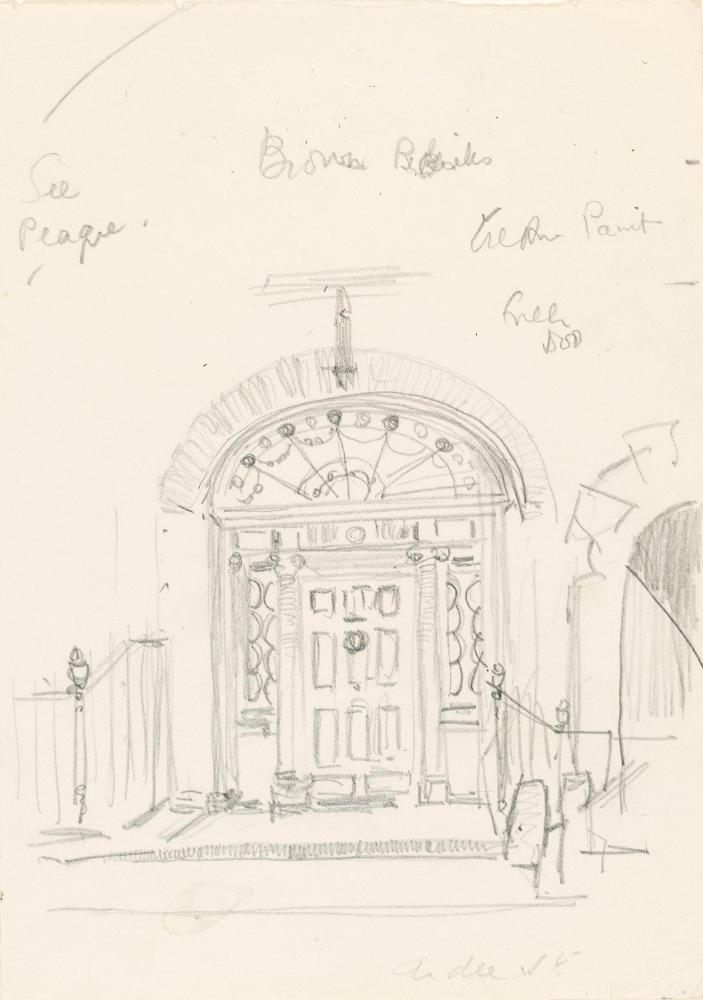 Brown Bricks
See
Peaqre.
Cream Paint
Green
Door